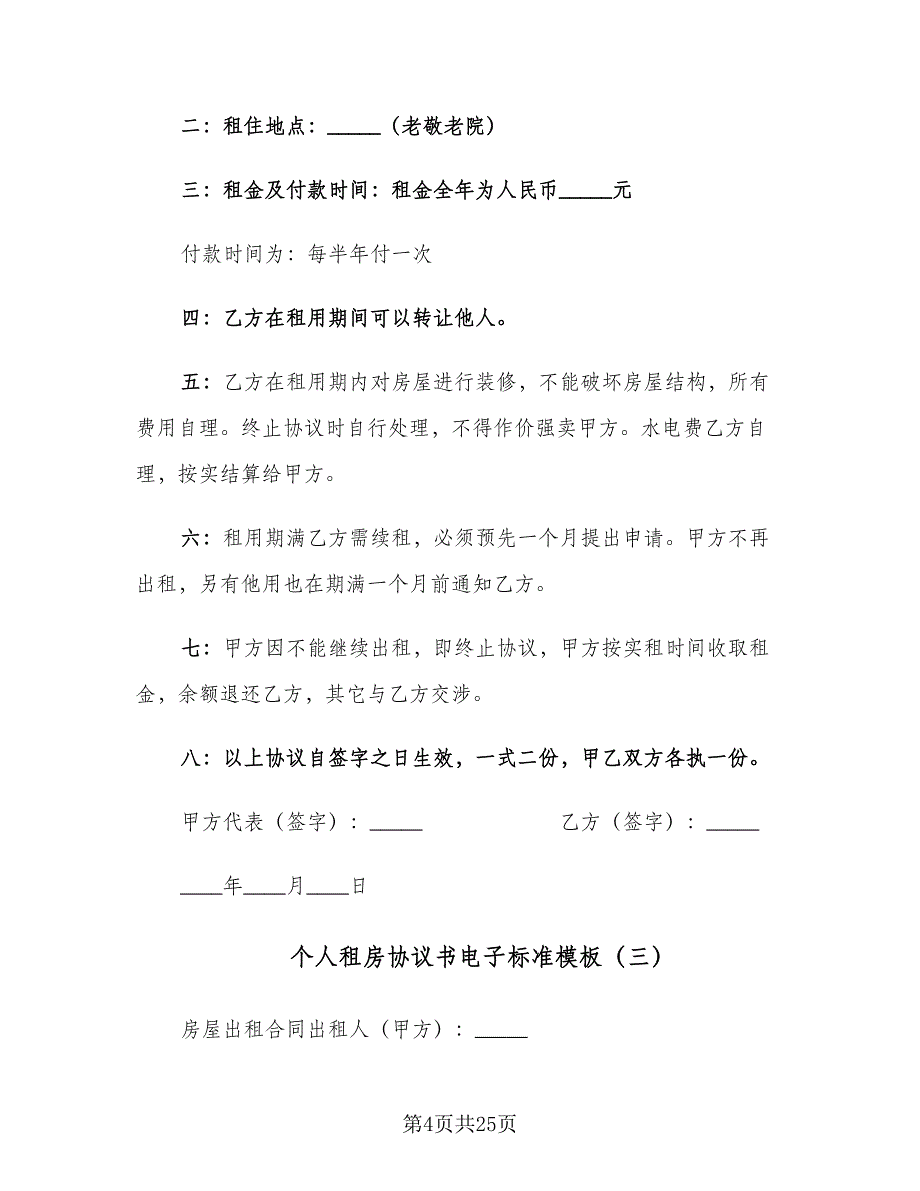 二：租住地点：_____（老敬老院）
三：租金及付款时间：租金全年为人民币_____元
付款时间为：每半年付一次
四：乙方在租用期间可以转让他人。
五：乙方在租用期内对房屋进行装修，不能破坏房屋结构，所有
费用自理。终止协议时自行处理，不得作价强卖甲方。水电费乙方自
理，按实结算给甲方。
六：租用期满乙方需续租，必须预先一个月提出申请。甲方不再
出租，另有他用也在期满一个月前通知乙方。
七：甲方因不能继续出租，即终止协议，甲方按实租时间收取租
金，余额退还乙方，其它与乙方交涉。
八：以上协议自签字之日生效，一式二份，甲乙双方各执一份。
甲方代表（签字）：_____ 乙方（签字）：_____
____年____月____日
个人租房协议书电子标准模板（三）
房屋出租合同出租人（甲方）：_____
第4页共25页